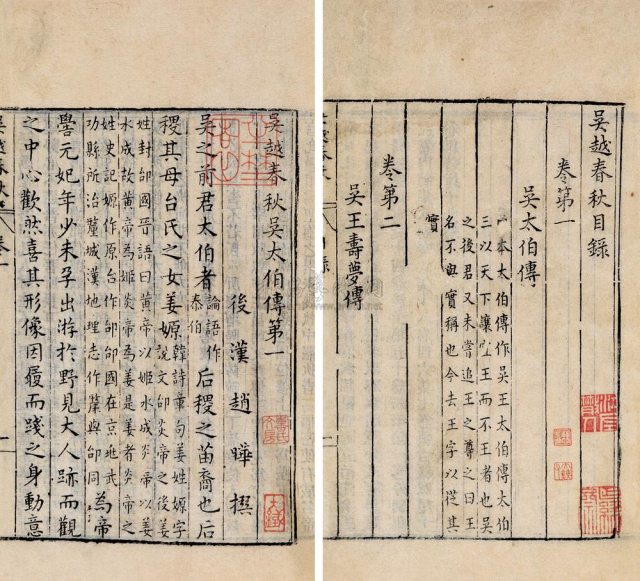 吳越春秋目錄
卷第一
吳太伯傳
一本太伯傳作吳王太伯傳太伯
三以天下讓
王而不王者也吳
之後君又未嘗追王之尊之曰王
名不與實稱也今去王字以從其
實
卷第二
吳王壽夢傳
吳越春秋吳太伯傳第一
後漢趙曄撰
吳之前君太伯者
論語作
泰伯
后稷之苗裔也后
稷其母台氏之女姜嫄
韓詩章句姜姓嫄字
說文邰炎帝之後姜
姓封邰國晉語曰黃帝以姬水成炎帝以姜
水成故黃帝為姬炎帝為姜是姜者炎帝之
姓史記嫄作原台作邰邰國在京兆武
功縣所治釐城漢地理志作斄與邰同
為帝
嚳元妃年少未孕出游於野見大人跡而觀
之中心歡然喜其形像因履而踐之身動意
吳越春秋